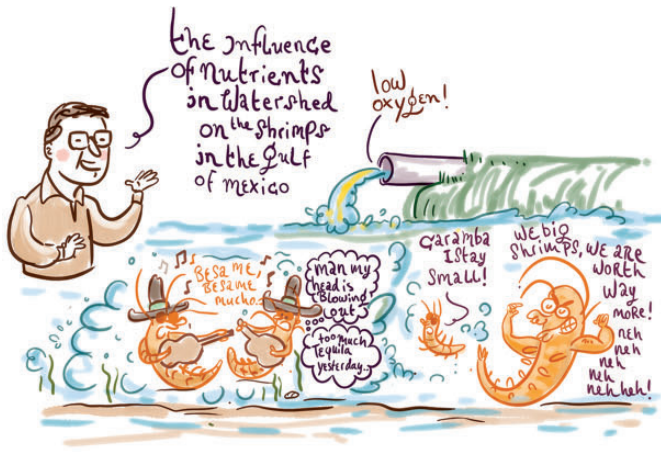 the Influence
of Nutrients
in Watershed
on the shrimps
in the gulf
of mexico
low
oxygen!
BESAME,
BESAME
mucho...
man my
head is
Blowing
out
too much
Tequila
yesterday...
Caramba
I stay
small!
we big
shrimps, we are
worth
way
more!
neh
neh
neh
neh
neh heh!